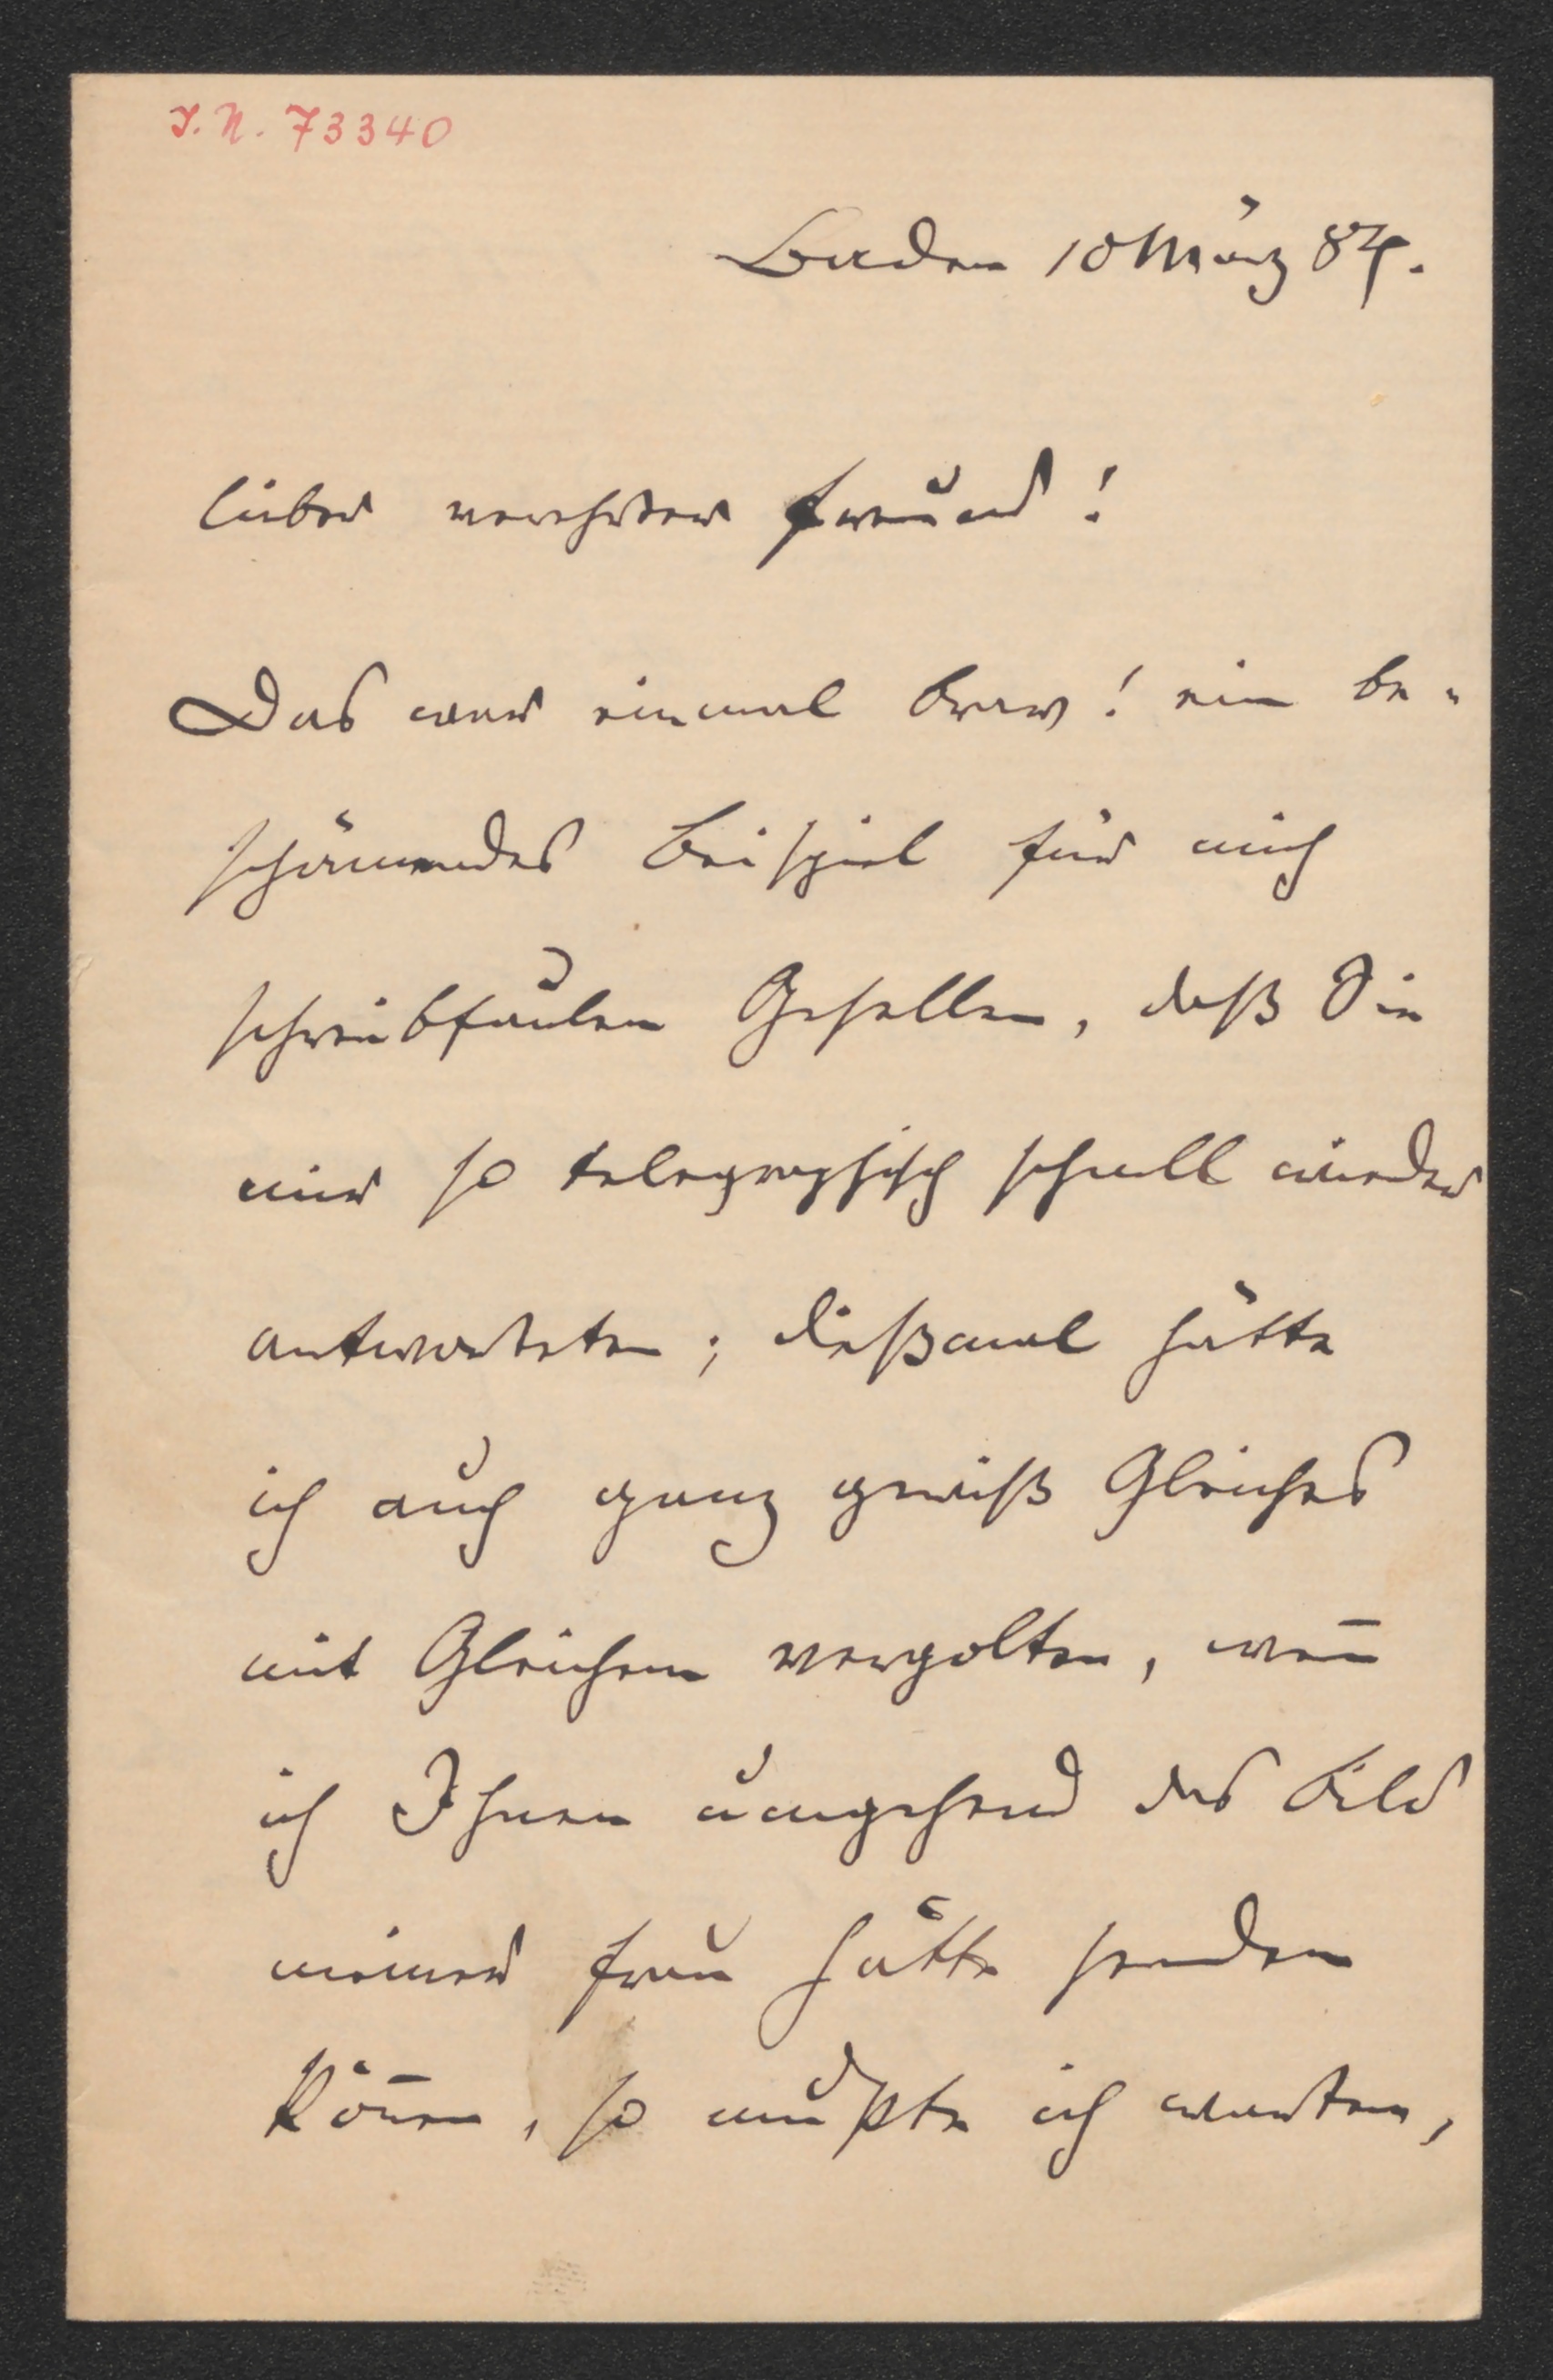 I.N. 73340
Baden 10 März 84.
lieber verehrter Freund!
Das war einmal brav! ein be-
schämendes Beispiel für mich
schreibfaulen Gesellen, daß Sie
mir so telegraphisch schnell wieder
antworteten; dießmal hätte
ich auch ganz gewiß Gleiches
mit Gleichem vergolten, wen̄
ich Ihnen umgehend das Bild
meiner Frau hätte senden
kön̄en, so mußte ich warten,